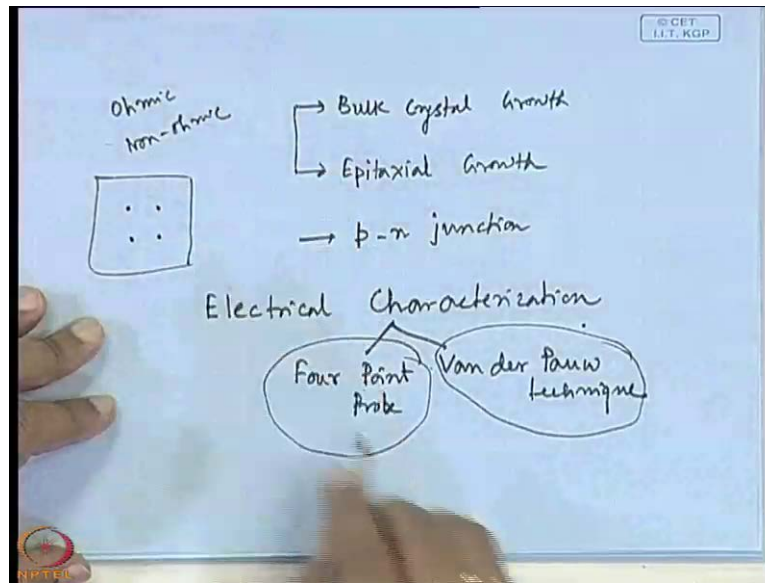 © CET
I.I.T, KGP
Ohmic
Non-Ohmic
Bulk Crystal Growth
Epitaxial Growth
p-n junction
Electrical Characterization
Four Point
Probe
Van der Pauw
technique
NPTEL